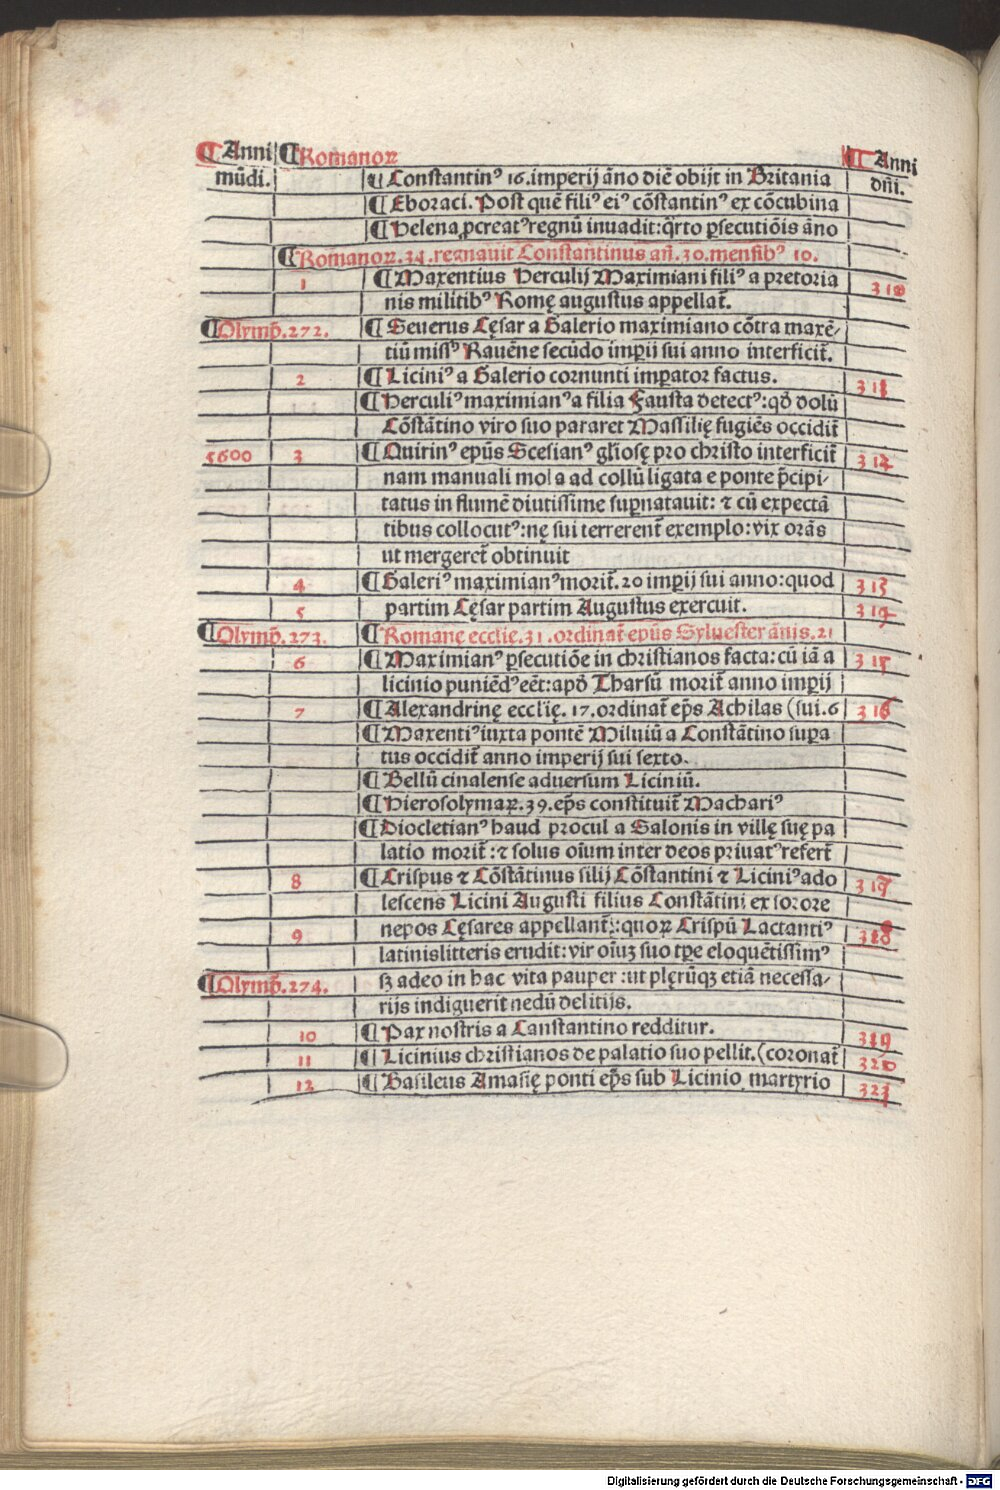 ¶ Anni ¶ Romanoꝝ ¶ Anni
mūdi. ¶ Constantinꝰ 16. imperij āno diē obijt in Britania dn̄i.
¶ Eboraci. Post quē filiꝰ eiꝰ cōstantinꝰ ex cōcubina
¶ Helena ꝓcreatꝰ regnū inuadit: q̄rto ꝑsecutiōis āno
¶ Romanoꝝ. 34. regnauit Constantinus an̄. 30. mensibꝰ 10.
1 ¶ Maxentius Herculij Maximiani filiꝰ a pretoria
nis militibꝰ Romę augustus appellat̄.
¶ Olymp̄. 272. ¶ Seuerus Cęsar a Galerio maximiano cōtra maxē-
tiū missꝰ Rauēne secūdo imꝑij sui anno interficit̄.
2 ¶ Liciniꝰ a Galerio cornunti imꝑator factus. 313
¶ Herculiꝰ maximianꝰ a filia Fausta detectꝰ: qd̄ dolū
Cōstātino viro suo pararet Massilię fugiēs occidit̄
5600 3 ¶ Quirinꝰ epūs Scesianꝰ gl̄iosę pro christo interficit̄
nam manuali mola ad collū ligata e ponte p̄cipi-
tatus in flumē diutissime suꝑnatauit: ⁊ cū expectā
tibus collocutꝰ: nę sui terrerent̄ exemplo: vix orās
ut mergeret̄ obtinuit
4 ¶ Galeriꝰ maximianꝰ morit̄. 20 imꝑij sui anno: quod 313
5 partim Cęsar partim Augustus exercuit.
¶ Olymp̄. 273. ¶ Romanę ecclię. 31. ordinat̄ epūs Syluester ānis. 21
6 ¶ Maximianꝰ ꝑsecutiōe in christianos facta: cū iā a 315
licinio puniēdꝰ eēt: apd̄ Tharsū morit̄ anno imꝑij
7 ¶ Alexandrinę ecclię. 17. ordinat̄ ep̄s Achilas (sui. 6 316
¶ Maxentiꝰ iuxta pontē Miluiū a Constātino suꝑa
tus occidit̄ anno imperij sui sexto.
¶ Bellū cinalense aduersum Liciniū.
¶ Hierosolymaꝝ. 39. ep̄s constituit̄ Machariꝰ
¶ Diocletianꝰ haud procul a Salonis in villę suę pa
latio morit̄: ⁊ solus oīum inter deos priuatꝰ refert̄
8 ¶ Crispus ⁊ Cōstātinus filij Cōstantini ⁊ Liciniꝰ ado 317
lescens Licini Augusti filius Constātini ex sorore
9 nepos Cęsares appellant̄: quoꝝ Crispū Lactantiꝰ 318
latinis litteris erudit: vir oīuꝫ suo tꝑe eloquētissimꝰ
¶ Olymp̄. 274. sꝫ adeo in hac vita pauper: ut plęrūqꝫ etiā necessa-
rijs indiguerit nedū delitijs.
10 ¶ Pax nostris a Canstantino redditur. 319
11 ¶ Licinius christianos de palatio suo pellit. (coronat̄ 320
12 ¶ Basileus Amasię ponti ep̄s sub Licinio martyrio
Digitalisierung gefördert durch die Deutsche Forschungsgemeinschaft - DFG